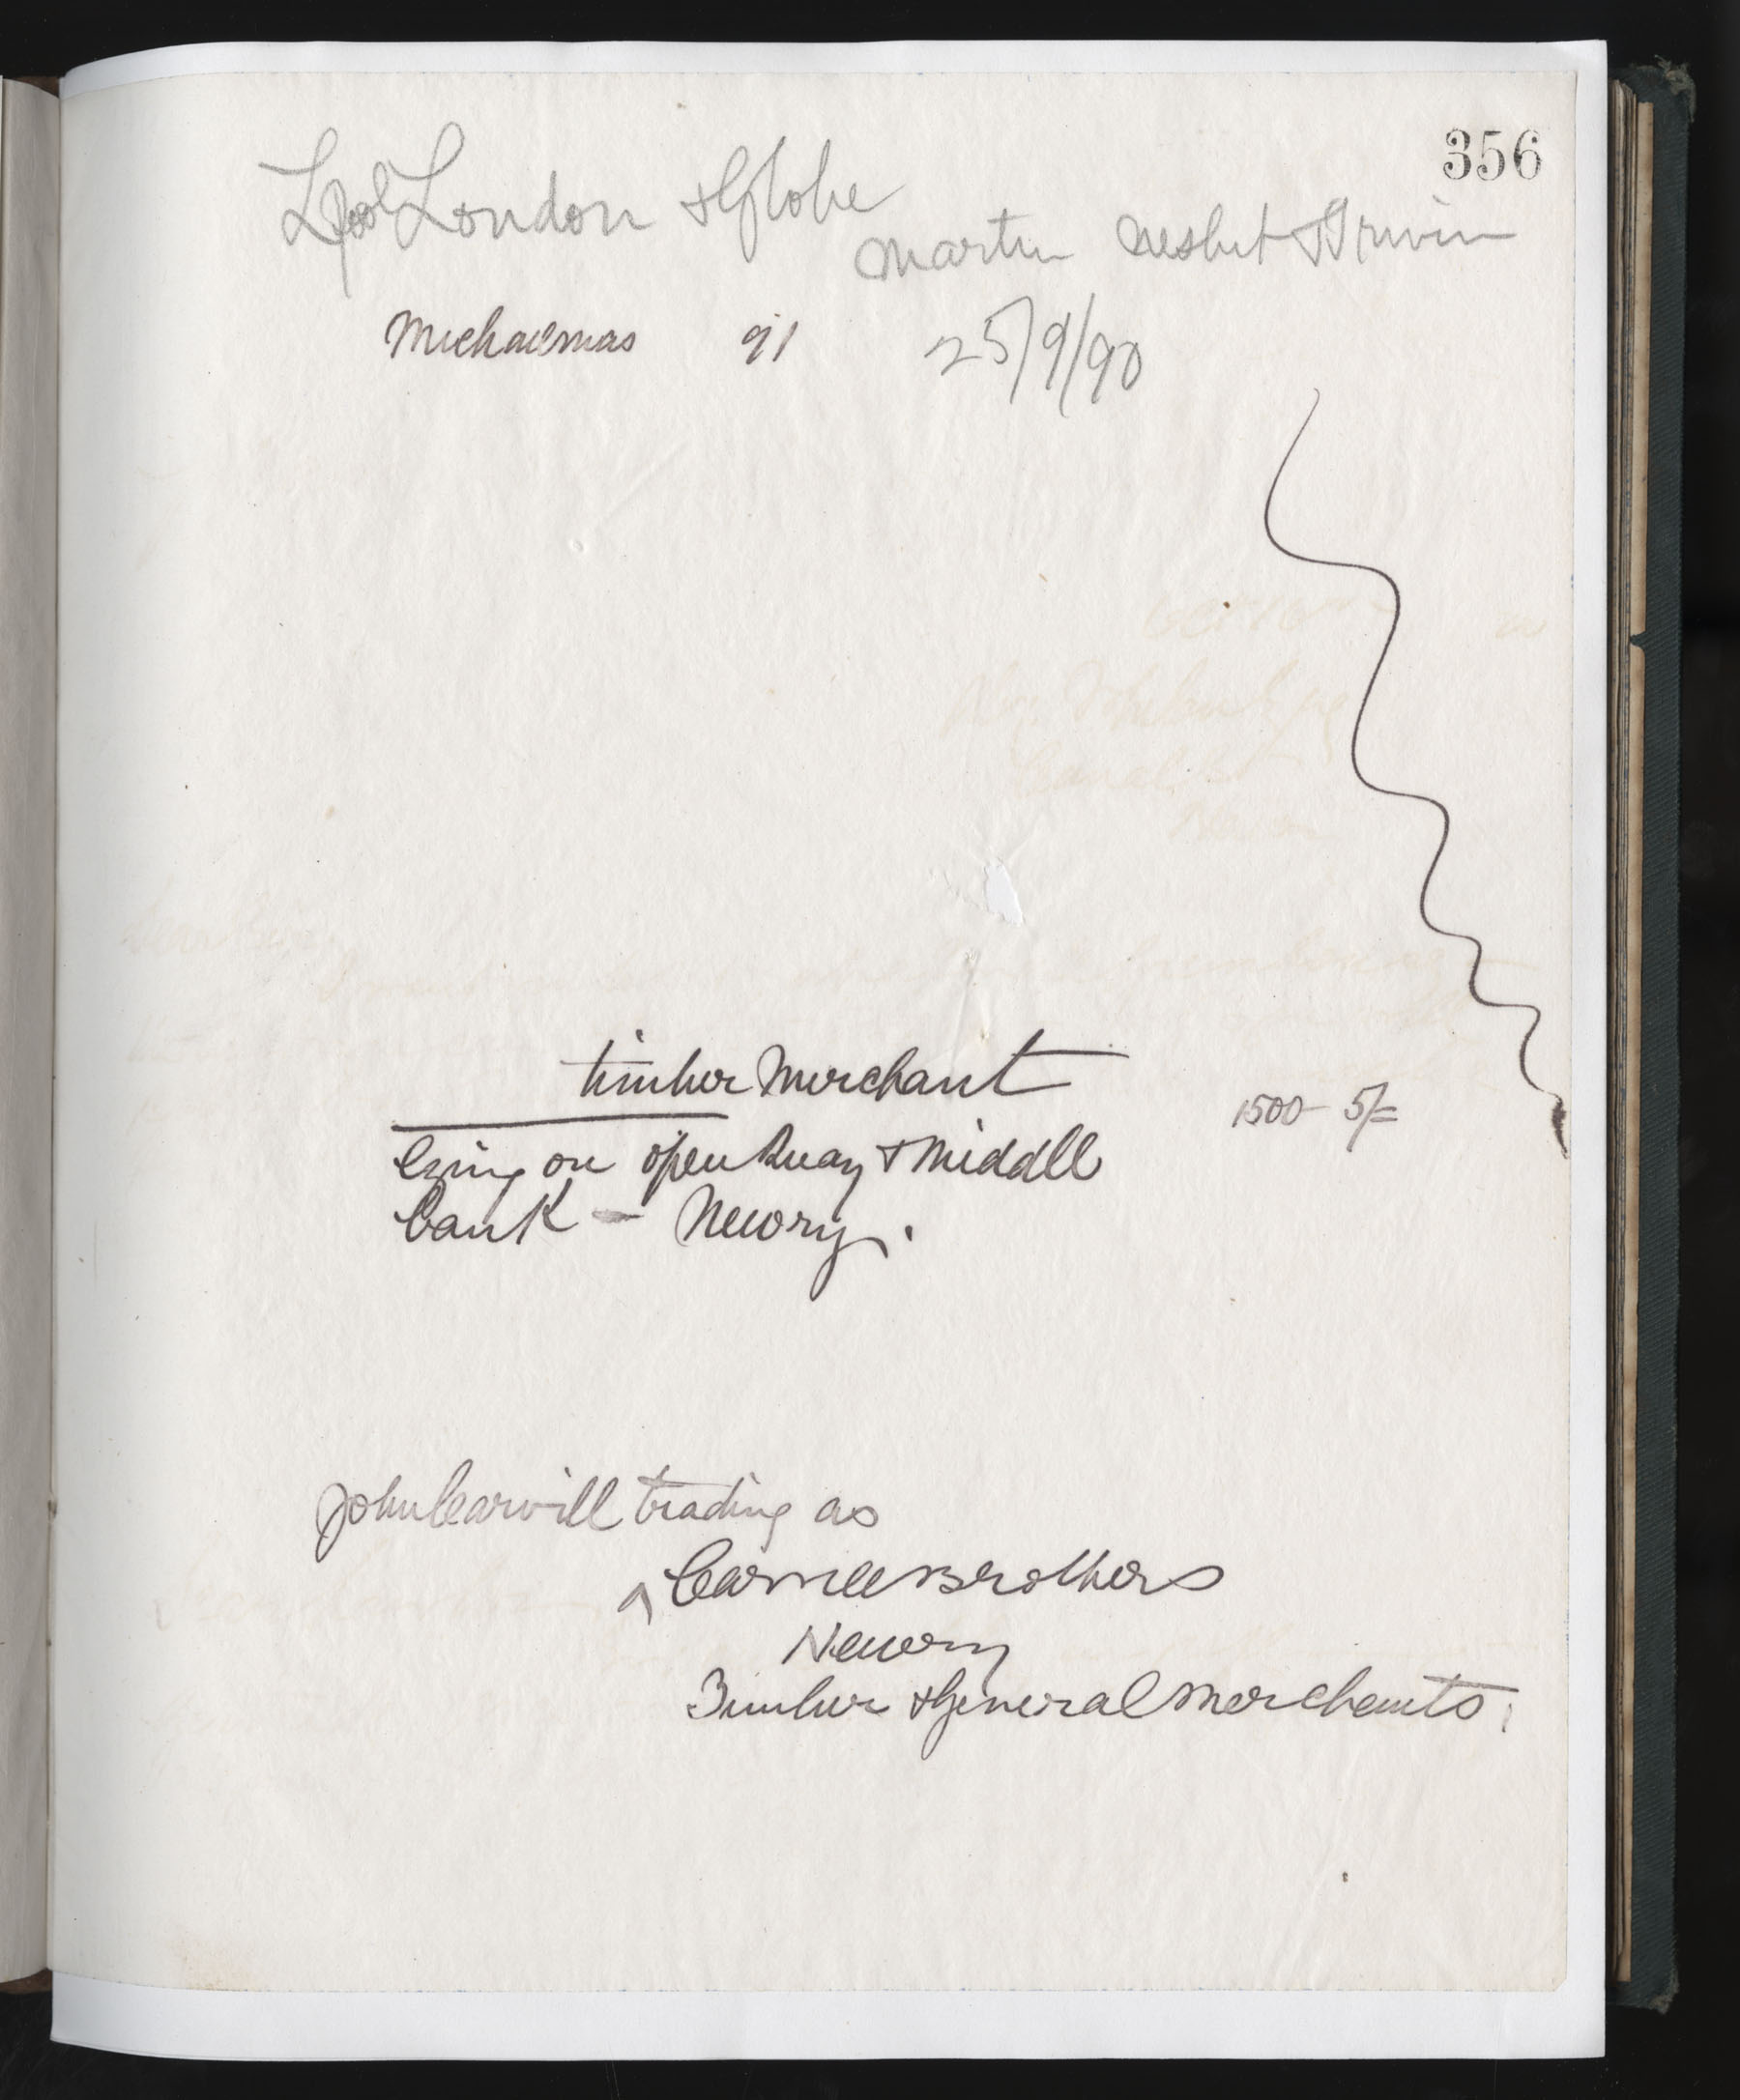 356
Lpool London & Globe
Martin Nesbit & Irwin
Michaelmas 91 25/9/90
timber Merchant
1500 5/=
lying on open Quay & Middle
bank - Newry.
John Carvill trading as
^ Carvill Brothers
Newry
Timber & General Merchants